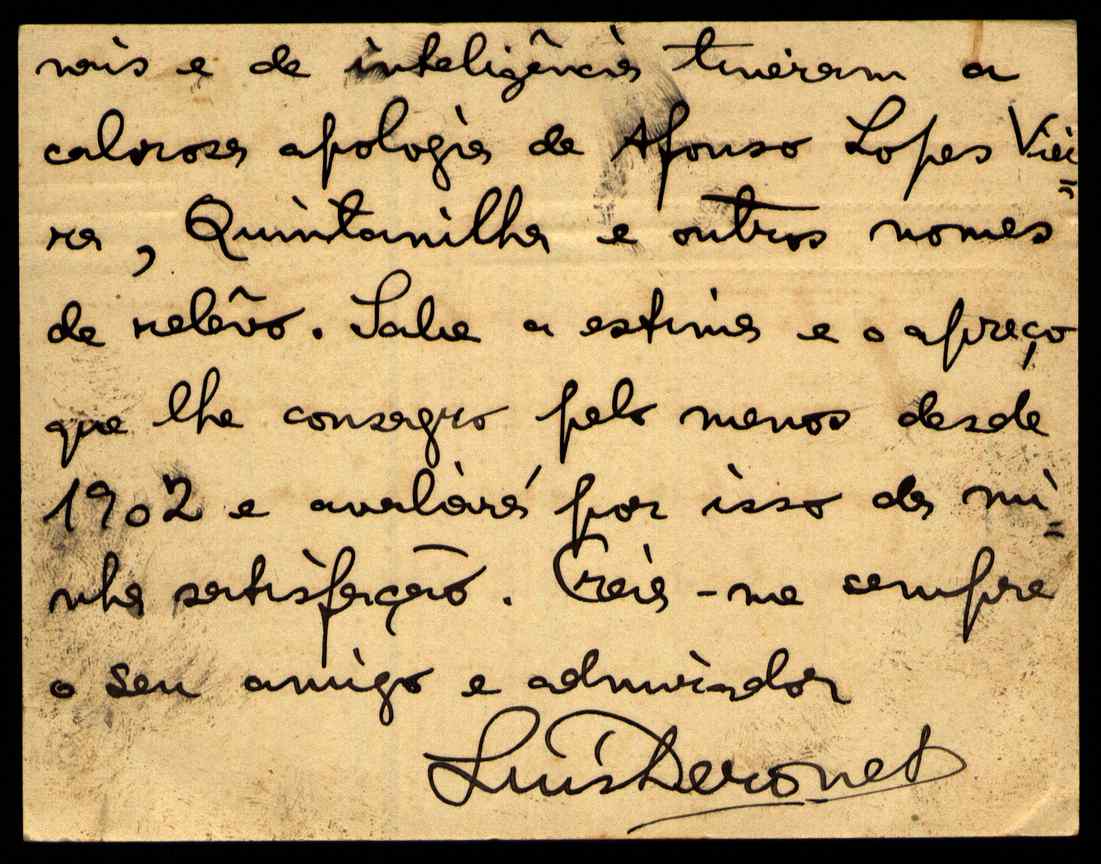 nais e de inteligência tiveram a
calorosa apologia de Afonso Lopes Viei=
ra, Quintanilha e outros nomes
de relêvo. Sabe a estima e o apreço
que lhe consagro pelo menos desde
1902 e avaliará por isso da mi=
nha satisfação. Creia-me sempre
o seu amigo e admirador
Luís Derouet